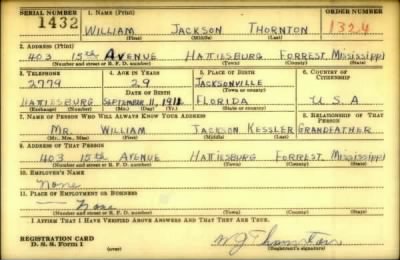 SERIAL NUMBER 1. NAME (Print) ORDER NUMBER
1432 WILLIAM JACKSON THORNTON 1324
(First) (Middle) (Last)
2. ADDRESS (Print)
403 15th AVENUE HATTIESBURG FORREST Mississippi
(Number and street or R. F. D. number) (Town) (County) (State)
3. TELEPHONE 4. AGE IN YEARS 5. PLACE OF BIRTH 6. COUNTRY OF CITIZENSHIP
2278 29 JACKSONVILLE
DATE OF BIRTH (Town or county)
HATTIESBURG SEPTEMBER 11, 1912 FLORIDA U.S.A
(Exchange) (Number) (Mo.) (Day) (Yr.) (State or country)
7. NAME OF PERSON WHO WILL ALWAYS KNOW YOUR ADDRESS 8. RELATIONSHIP OF THAT PERSON
MR. WILLIAM JACKSON KESSLER GRANDFATHER
(Mr., Mrs., Miss) (First) (Middle) (Last)
9. ADDRESS OF THAT PERSON
403 15th AVENUE HATTIESBURG FORREST Mississippi
(Number and street or R. F. D. number) (Town) (County) (State)
10. EMPLOYER'S NAME
None
11. PLACE OF EMPLOYMENT OR BUSINESS
None
(Number and street or R. F. D. number) (Town) (County) (State)
I AFFIRM THAT I HAVE VERIFIED ABOVE ANSWERS AND THAT THEY ARE TRUE.
REGISTRATION CARD
D. S. S. Form 1 (over) W J Thornton
(Registrant's signature)